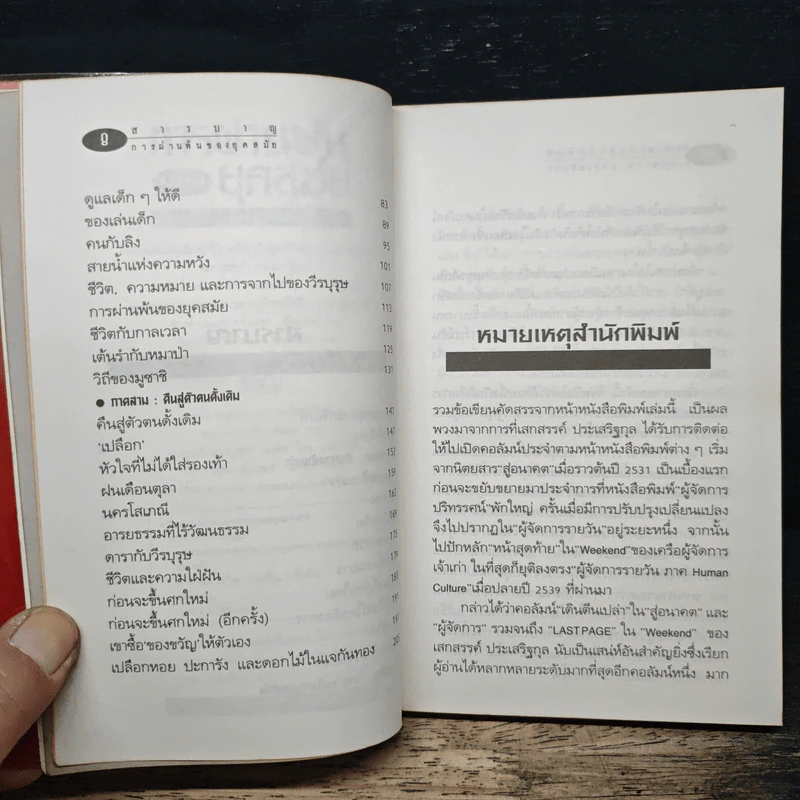 ๘
สารบาญ
การผ่านพ้นของยุคสมัย
ดูแลเด็ก ๆ ให้ดี 83
ของเล่นเด็ก 89
คนกับลิง 95
สายน้ำแห่งความหวัง 101
ชีวิต, ความหมาย และการจากไปของวีรบุรุษ 107
การผ่านพ้นของยุคสมัย 113
ชีวิตกับกาลเวลา 119
เต้นรำกับหมาป่า 125
วิถีของมูซาชิ 131
● ภาคสาม : คืนสู่ตัวตนดั้งเดิม
คืนสู่ตัวตนดั้งเดิม 141
'เปลือก' 147
หัวใจที่ไม่ได้ใส่รองเท้า 153
ฝนเดือนตุลา 159
นครโสเภณี 163
อารยธรรมที่ไร้วัฒนธรรม 169
ดารากับวีรบุรุษ 175
ชีวิตและความใฝ่ฝัน 179
ก่อนจะขึ้นศกใหม่ 185
ก่อนจะขึ้นศกใหม่ (อีกครั้ง) 191
เขาซื้อ'ของขวัญ'ให้ตัวเอง 197
เปลือกหอย ปะการัง และดอกไม้ในแจกันทอง
หมายเหตุสำนักพิมพ์
รวมข้อเขียนคัดสรรจากหน้าหนังสือพิมพ์เล่มนี้ เป็นผล
พวงมาจากการที่เสกสรรค์ ประเสริฐกุล ได้รับการติดต่อ
ให้ไปเปิดคอลัมน์ประจำตามหน้าหนังสือพิมพ์ต่าง ๆ เริ่ม
จากนิตยสาร"สู่อนาคต"เมื่อราวต้นปี 2531 เป็นเบื้องแรก
ก่อนจะขยับขยายมาประจำการที่หนังสือพิมพ์"ผู้จัดการ
ปริทรรศน์"พักใหญ่ ครั้นเมื่อมีการปรับปรุงเปลี่ยนแปลง
จึงไปปรากฏใน"ผู้จัดการรายวัน"อยู่ระยะหนึ่ง จากนั้น
ไปปักหลัก"หน้าสุดท้าย"ใน"Weekend"ของเครือผู้จัดการ
เจ้าเก่า ในที่สุดก็ยุติลงตรง"ผู้จัดการรายวัน ภาค Human
Culture"เมื่อปลายปี 2539 ที่ผ่านมา
กล่าวได้ว่าคอลัมน์"เดินตีนเปล่า"ใน"สู่อนาคต" และ
"ผู้จัดการ" รวมจนถึง "LAST PAGE" ใน "Weekend" ของ
เสกสรรค์ ประเสริฐกุล นับเป็นเสน่ห์อันสำคัญยิ่งซึ่งเรียก
ผู้อ่านได้หลากหลายระดับมากที่สุดอีกคอลัมน์หนึ่ง มาก